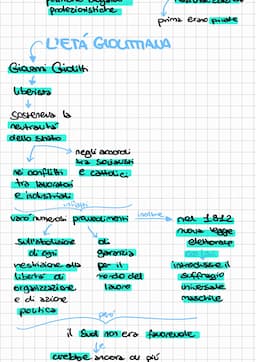 protezionistiche
prima erano private
L'ETÁ GIOLITTIANA
Giovanni Giolitti
liberista
sosteneva la
neutralità
dello stato
negli accordi
tra socialisti
e cattolici
nei conflitti
tra lavoratori
e industriali
infatti
varò numerosi provvedimenti
inoltre
nel 1912
nuova legge
elettorale
introdusse il
suffragio
universale
maschile
sull'abolizione
di ogni
restrizione alla
libertà di
organizzazione
e di azione
politica
di
garanzia
per il
mondo del
lavoro
però
il Sud non era favorevole
crebbe ancora di più